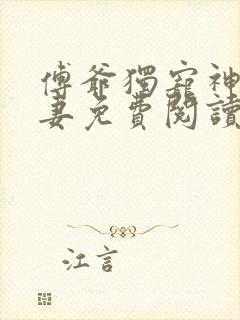 傅爺獨寵神
妻免費閱讀
江言